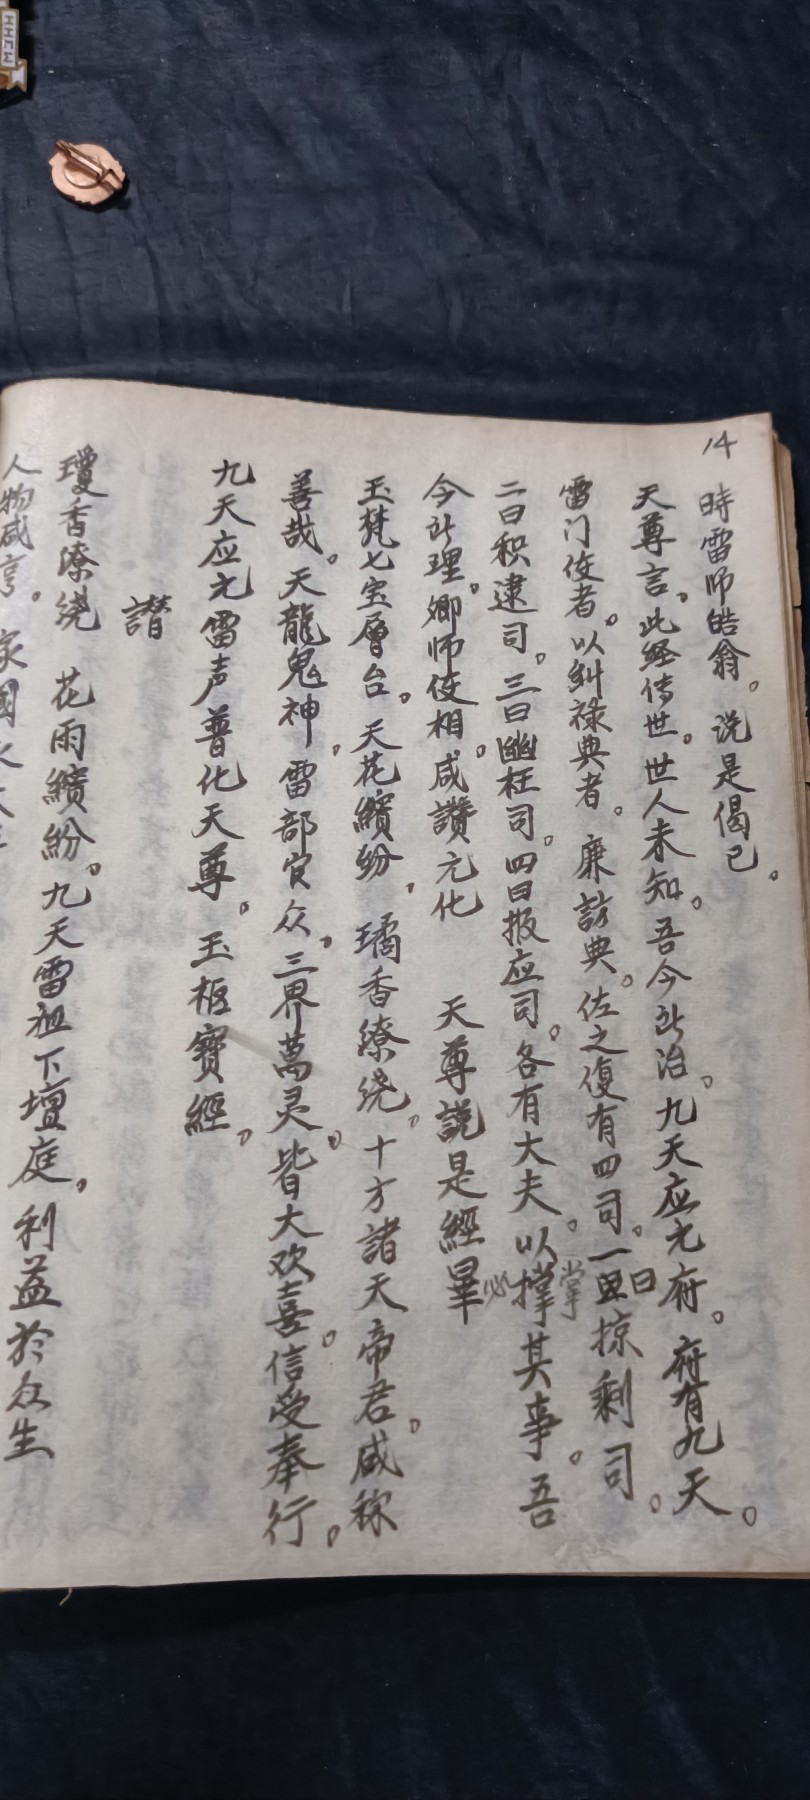 14
時雷师皓翁。说是偈已。
天尊言。此经传世。世人未知。吾今此治。九天应元府。府有九天。
雷门使者。以糾禄典者。廉訪典。佐之復有四司。一曰掠剩司。
二曰积逮司。三曰幽枉司。四曰报应司。各有大夫。以掌其事。吾
今此理。卿师使相。咸讚元化 天尊説是經畢
玉梵七宝層台。天花繽纷，璚香缭绕。十方諸天帝君。咸称
善哉。天龍鬼神，雷部官众。三界萬灵。皆大欢喜。信受奉行。
九天应元雷声普化天尊。玉枢寶經。
讃
瓊香缭绕 花雨繽紛。九天雷祖下壇庭。利益於众生
人物咸亨。家國